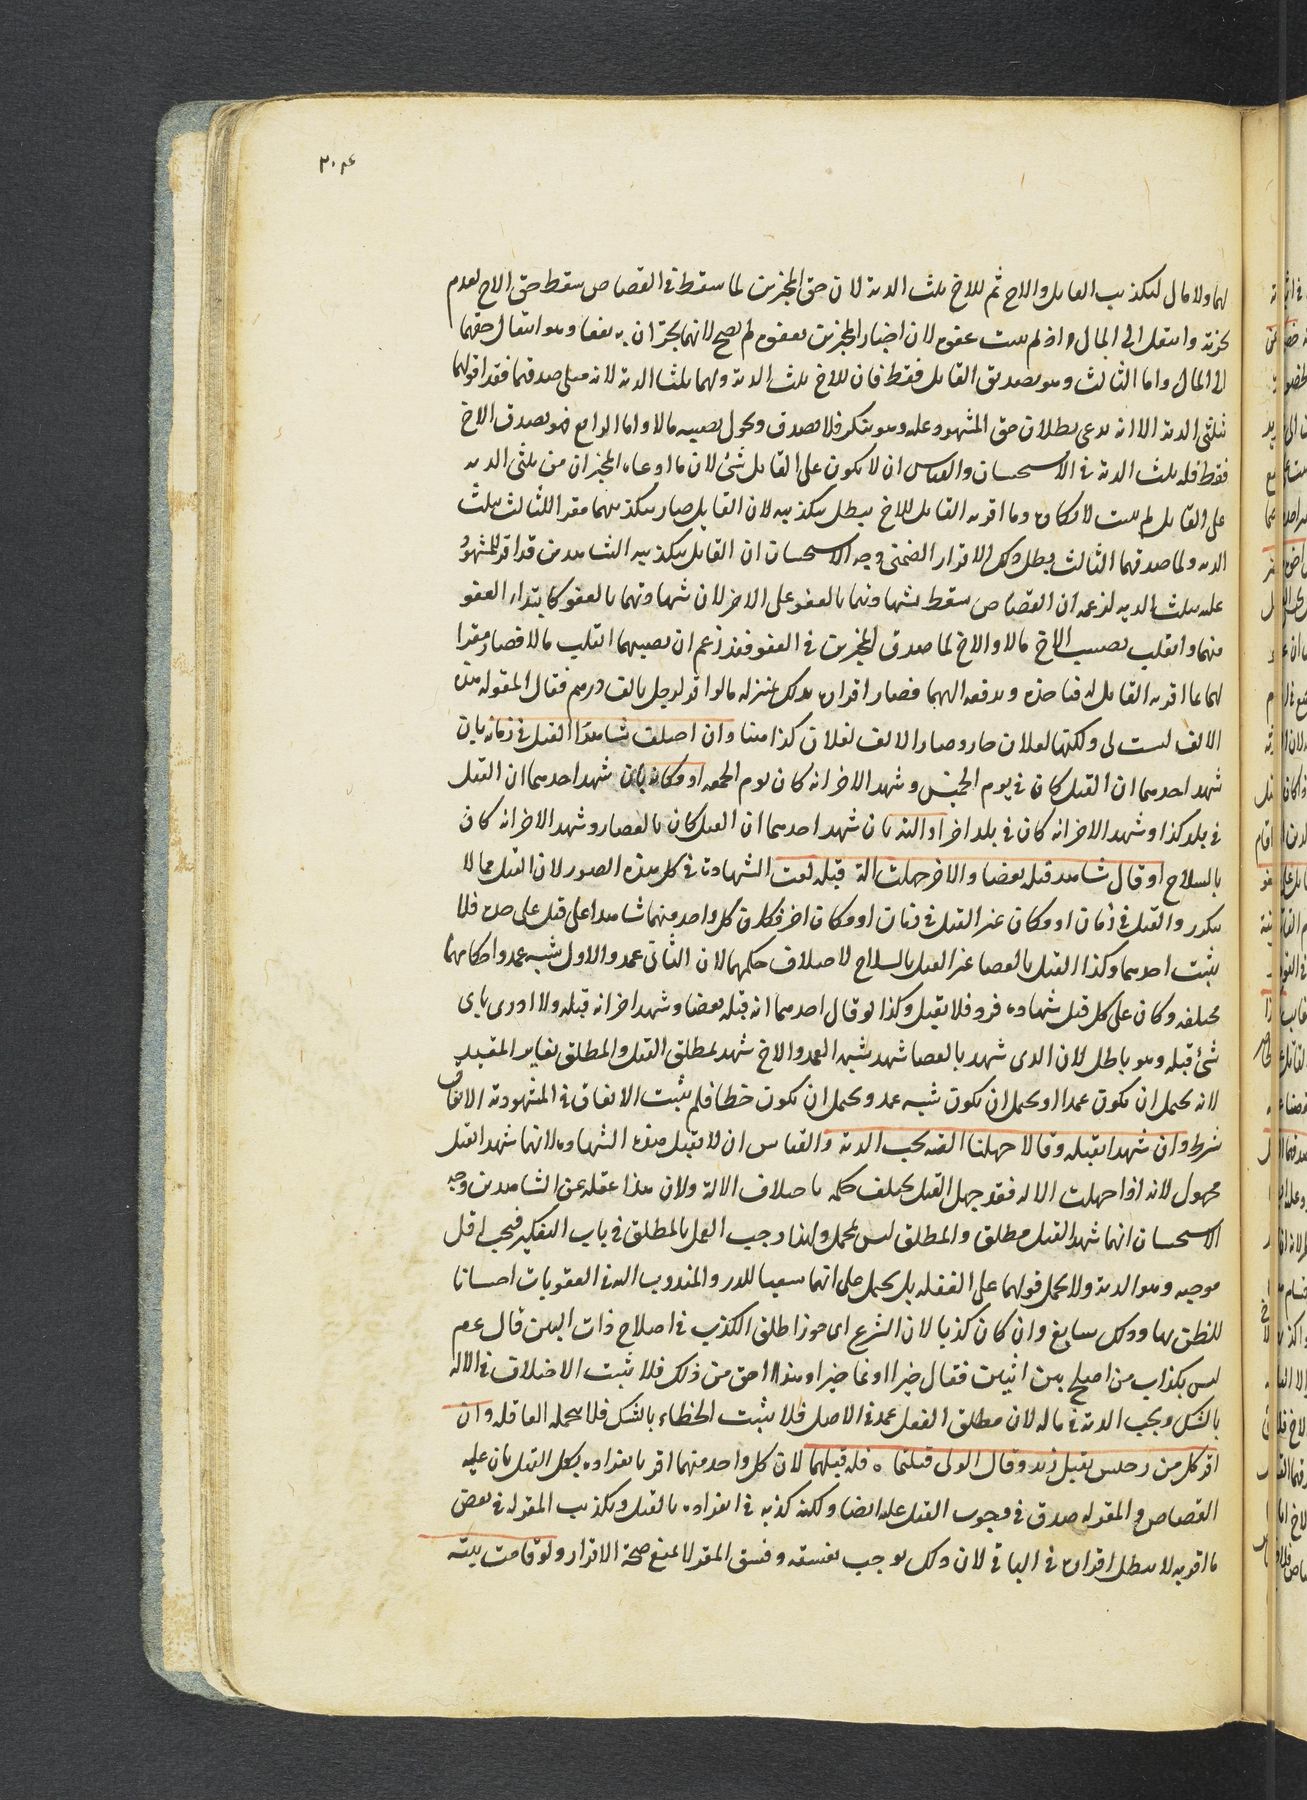 ٣٠٤
لهما ولا مال لتكذيب القاتل والاخ ثم للاخ ثلث الدية لان حق المخبرين لما سقط في القصاص سقط حق الاخ لعدم
تجزيه وانتقل الى المال واذ لم يثبت عفوه لان اخبار المخبرين بعفوه لم يصح لانهما يجران به نفعا وهو انتقال حقهما
الى المال واما الثالث وهو تصديق القاتل فقط فان للاخ ثلث الدية ولهما ثلثا الدية لانه صدقهما فقد اقر لهما
بثلثي الدية الا انه يدعي بطلان حق المشهود عليه وهو ينكر فلا يصدق ويحول نصيبه مالا واما الرابع فهو تصديق الاخ
فقط فله ثلث الدية في الاستحسان والقياس ان لا يكون على القاتل شئ لان ما ادعاه المخبران من ثلثي الدية
على القاتل لم يثبت لانكاره وما اقر به القاتل للاخ يبطل بتكذيبه لان القاتل صار بتكذيبهما مقرا للثالث بثلث
الدية ولما صدقهما الثالث بطل ذلك الاقرار الضمني وجه الاستحسان ان القاتل بتكذيبه الشاهدين قد اقر للمشهود
عليه بثلث الدية لزعمه ان القصاص سقط بشهادتهما بالعفو على الاخر لان شهادتهما بالعفو كابتداء العفو
منهما وانقلب نصيب الاخ مالا والاخ لما صدق المخبرين في العفو فقد زعم ان نصيبهما انقلب مالا فصار مقرا
لهما بما اقر به القاتل له فياخذه ويدفعه اليهما فصار اقراره بذلك بمنزلة ما لو اقر لرجل بالف درهم فقال المقر له هذه
الالف ليست لي ولكنها لفلان جاز وصار الالف لفلان كذا هنا وان اختلف شاهدا القتل في زمانه بان
شهد احدهما ان القتل كان في يوم الخميس وشهد الاخر انه كان يوم الجمعة او مكانه بان شهد احدهما ان القتل
في بلد كذا وشهد الاخر انه كان في بلد اخر او آلته بان شهد احدهما ان القتل كان بالعصا وشهد الاخر انه كان
بالسلاح او قال شاهد قتله بعصا والاخر جهلت آلة قتله لغت الشهادة في كل هذه الصور لان القتل مما لا
يتكرر والقتل في زمان او مكان غير القتل في زمان او مكان اخر فكان كل واحد منهما شاهدا على قتل على حدة فلا
يثبت احدهما وكذا القتل بالعصا غير القتل بالسلاح لاختلاف حكمهما لان الثاني عمد والاول شبه عمد واحكامهما
مختلفة وكان على كل قتل شهادة فرد فلا يقبل وكذا لو قال احدهما انه قتله بعصا وشهد اخر انه قتله ولا ادري باي
شئ قتله وهو باطل لان الذي شهد بالعصا شهد بشبه العمد والاخ شهد لمطلق القتل والمطلق يغاير المقيد
لانه يحتمل ان يكون عمدا او يحتمل ان يكون شبه عمد ويحتمل ان يكون خطا فلم يثبت الاتفاق في المشهود به الاتفاق
شرط وان شهدا بقتله وقالا جهلنا آلته يجب الدية والقياس ان لا يقبل هذه الشهادة لانهما شهدا بقتل
مجهول لانه اذا جهلت الالة فقد جهل القتل يختلف حكمه باختلاف الالة ولان هذا غفلة عن الشاهدين وجه
الاستحسان انهما شهدا بقتل مطلق والمطلق ليس بمجمل ولهذا وجب العمل بالمطلق في باب التفكير فيجب اقل
موجبه وهو الدية ولا يحمل قولهما على الغفلة بل يحمل على انهما سعيا للدرء والمندوب اليه في العقوبات احسانا
للظن بهما وذلك سايغ وان كان كذبا لان الشرع اي جوز اطلق الكذب في اصلاح ذات البين قال عم
ليس بكذاب من اصلح بين اثنين فقال خيرا او نما خيرا وهذا احق من ذلك فلا يثبت الاختلاف في الالة
بالشك ويجب الدية في ماله لان مطلق الفعل عمد في الاصل فلا يثبت الخطاء بالشك فلا يتحمله العاقلة وان
اقر كل من رجلين بقتل زيد وقال الولي قتلتما ه فله قتلهما لان كل واحد منهما اقر بانفراده بكل القتل بان عليه
القصاص والمقر له صدق في وجوب القتل عليه ايضا ولكنه كذبه في انفراده بالقتل وتكذيب المقر له في بعض
ما اقر به لا يبطل اقراره في الباقي لان ذلك يوجب تفسيقه وفسق المقر لا يمنع صحة الاقرار ولو قامت بينة